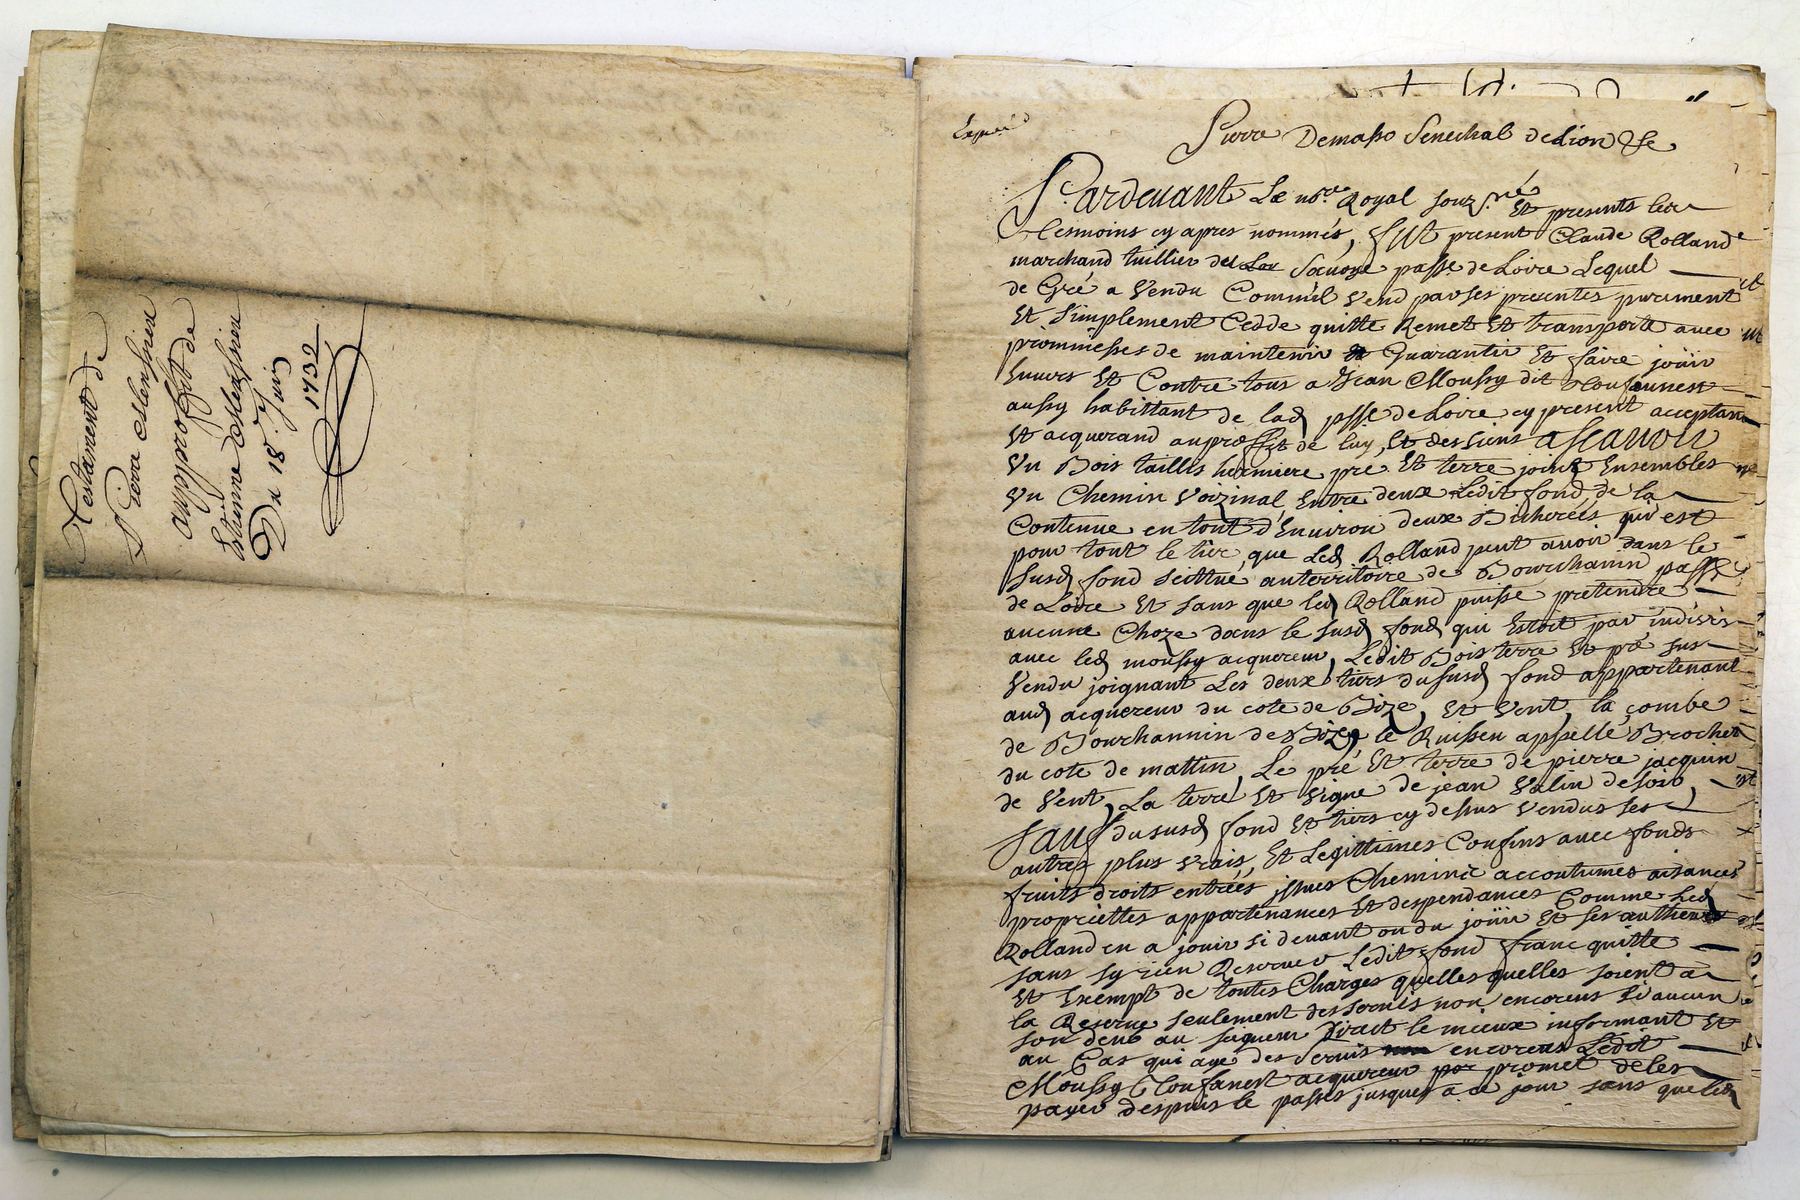 Testament de
Pierre
au proffit de
Estienne
Du 18e Juin
1732
Expedié
Pierre Demasso Senechal de Lion &c
Pardevant Le nore. Royal souzsné Et presents les
tesmoins cy apres nommés, fut present Claude Rolland
marchand tuillier de passe de Loire Lequel
de Gré a Vendu Comm'il Vend par ses presentes purement
Et simplement Cedde quitte Remet Et transporte avec
prommesses de maintenir Guarantir Et faire joüir
Envers Et Contre tous a Jean Moussy dit
aussy habittant de lad psse de Loire cy present acceptant
Et acquerand au proffit de luy, Et des siens ascavoir
Vn Bois taillis hermiere pré Et terre joint Ensembles
Vn Chemin Voizinal Entre deux Ledit fond de la
Contenue en tout d'Environ deux Bicherées qui est
pour tout le tier, que Led Rolland peut avoir dans le
susd fond scittué au territoire de Bourchanin passe
de Loire Et sans que led Rolland puisse pretendre
aucune Choze dans le susd fond qui Estoit par indivis
avec led moussy acquereur, Ledit Bois terre Et pré sus
Vendu joignant Les deux tiers du susd fond appartenant
aud acquereur du coté de Bize, Et Vent, la combe
de Bourchannin de Bize, le Ruisseu appellé Brochet
du coté de mattin, Le pré Et terre de pierre jacquin
de Vent, La terre Et Vigne de jean Valin de soir,
sauf du susd fond Et tiers cy dessus Vendus ses
autres plus Vrais, Et Legittimes Confins avec fonds
fruits droits entrées jssues Chemins accoutumes aisances
propriettes appartenances Et despendances Comme Led
Rolland en a jouir si devant ou du joüir Et ses autheurs
sans sy rien Reserver Ledit fond franc quitte
Et Exempt de toutes Charges quelles quelles soient a
la Reserve seulement des servis non encorens si aucun
son deub au seigneur direct le mieux informant Et
au Cas qui aye des servis encorens Ledit
Moussy acquereur promet de les
payer despuis le passes jusques a ce jour sans que led